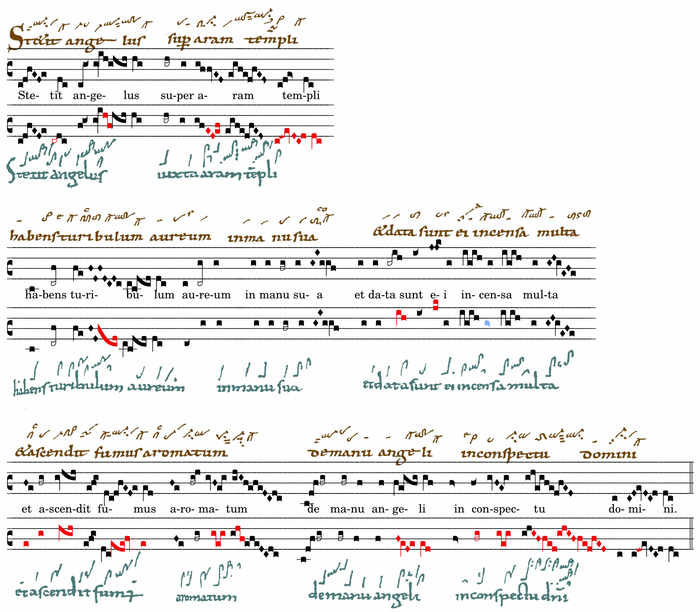 Stetit angelus super aram templi
Ste- tit an-ge- lus su-per a- ram tem-pli
Stetit angelus iuxta aram templi
habens turibulum aureum in manu sua & data sunt ei incensa multa
ha-bens tu-ri- bu- lum au-re-um in manu su- a et da-ta sunt e- i in- cen-sa mul-ta
habens turibulum aureum in manu sua et data sunt ei incensa multa
& ascendit fumus aromatum de manu angeli in conspectu domini
et a-scen-dit fu- mus a-ro-ma- tum de ma-nu an- ge- li in con-spec- tu do- mi- ni.
et ascendit fum9 aromatum de manu angeli in conspectu dni